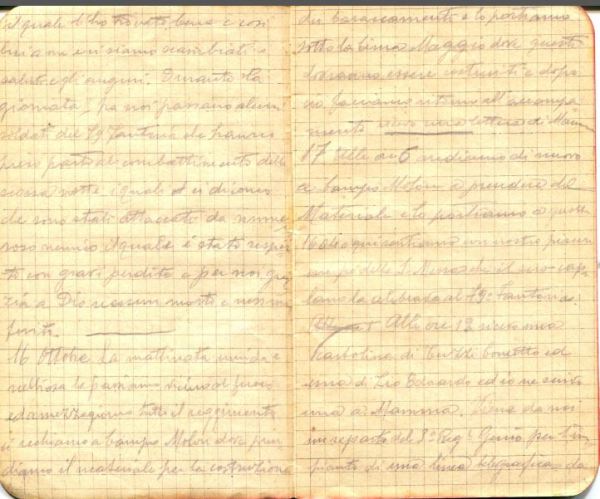 il quale l'ho trovato bene e così
lui a me e ci siamo scambiati i
saluti e gli auguri. Durante la
giornata da noi passano alcuni
soldati del 79 Fanteria che hanno
preso parte al combattimento della
scorsa notte i quali ci dicono
che sono stati attaccati da nume
roso nemico il quale è stato respin
to con gravi perdite e per noi gra
zia a Dio nessun morto e nessun
ferito.
16 Ottobre La mattinata umida e
la passiamo vicino al fuoco
ed a mezzogiorno tutto il reggimento
ci rechiamo a Campo Molon dove pren
diamo il materiale per la costruzione
dei baraccamenti e lo portiamo
sotto la Cima Maggio dove questi
dovranno essere costruiti e dopo
facciamo ritorno all'accampa
mento lettera di Mamma
17 Alle ore 6 andiamo di nuovo
a Campo Molon a prendere del
Materiale e lo portiamo a
e qui sentiamo un nostro
il suo cap
la celebrava al 79° Fanteria.
Alle ore 12 ricevo una
Cartolina di ed
una di Zio Edoardo ed io ne scrivo
una a Mamma. Viene da noi
un reparto del 3° Reg. Genio per l'im
pianto di una linea telegrafica da